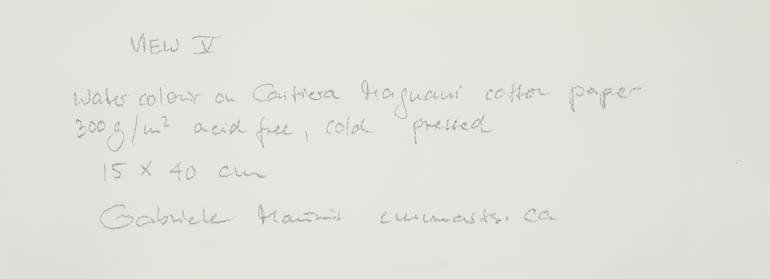 VIEW V
Water colour on Cartiera Magnani cotton paper
300 g/m² acid free, cold pressed
15 x 40 cm
Gabriele